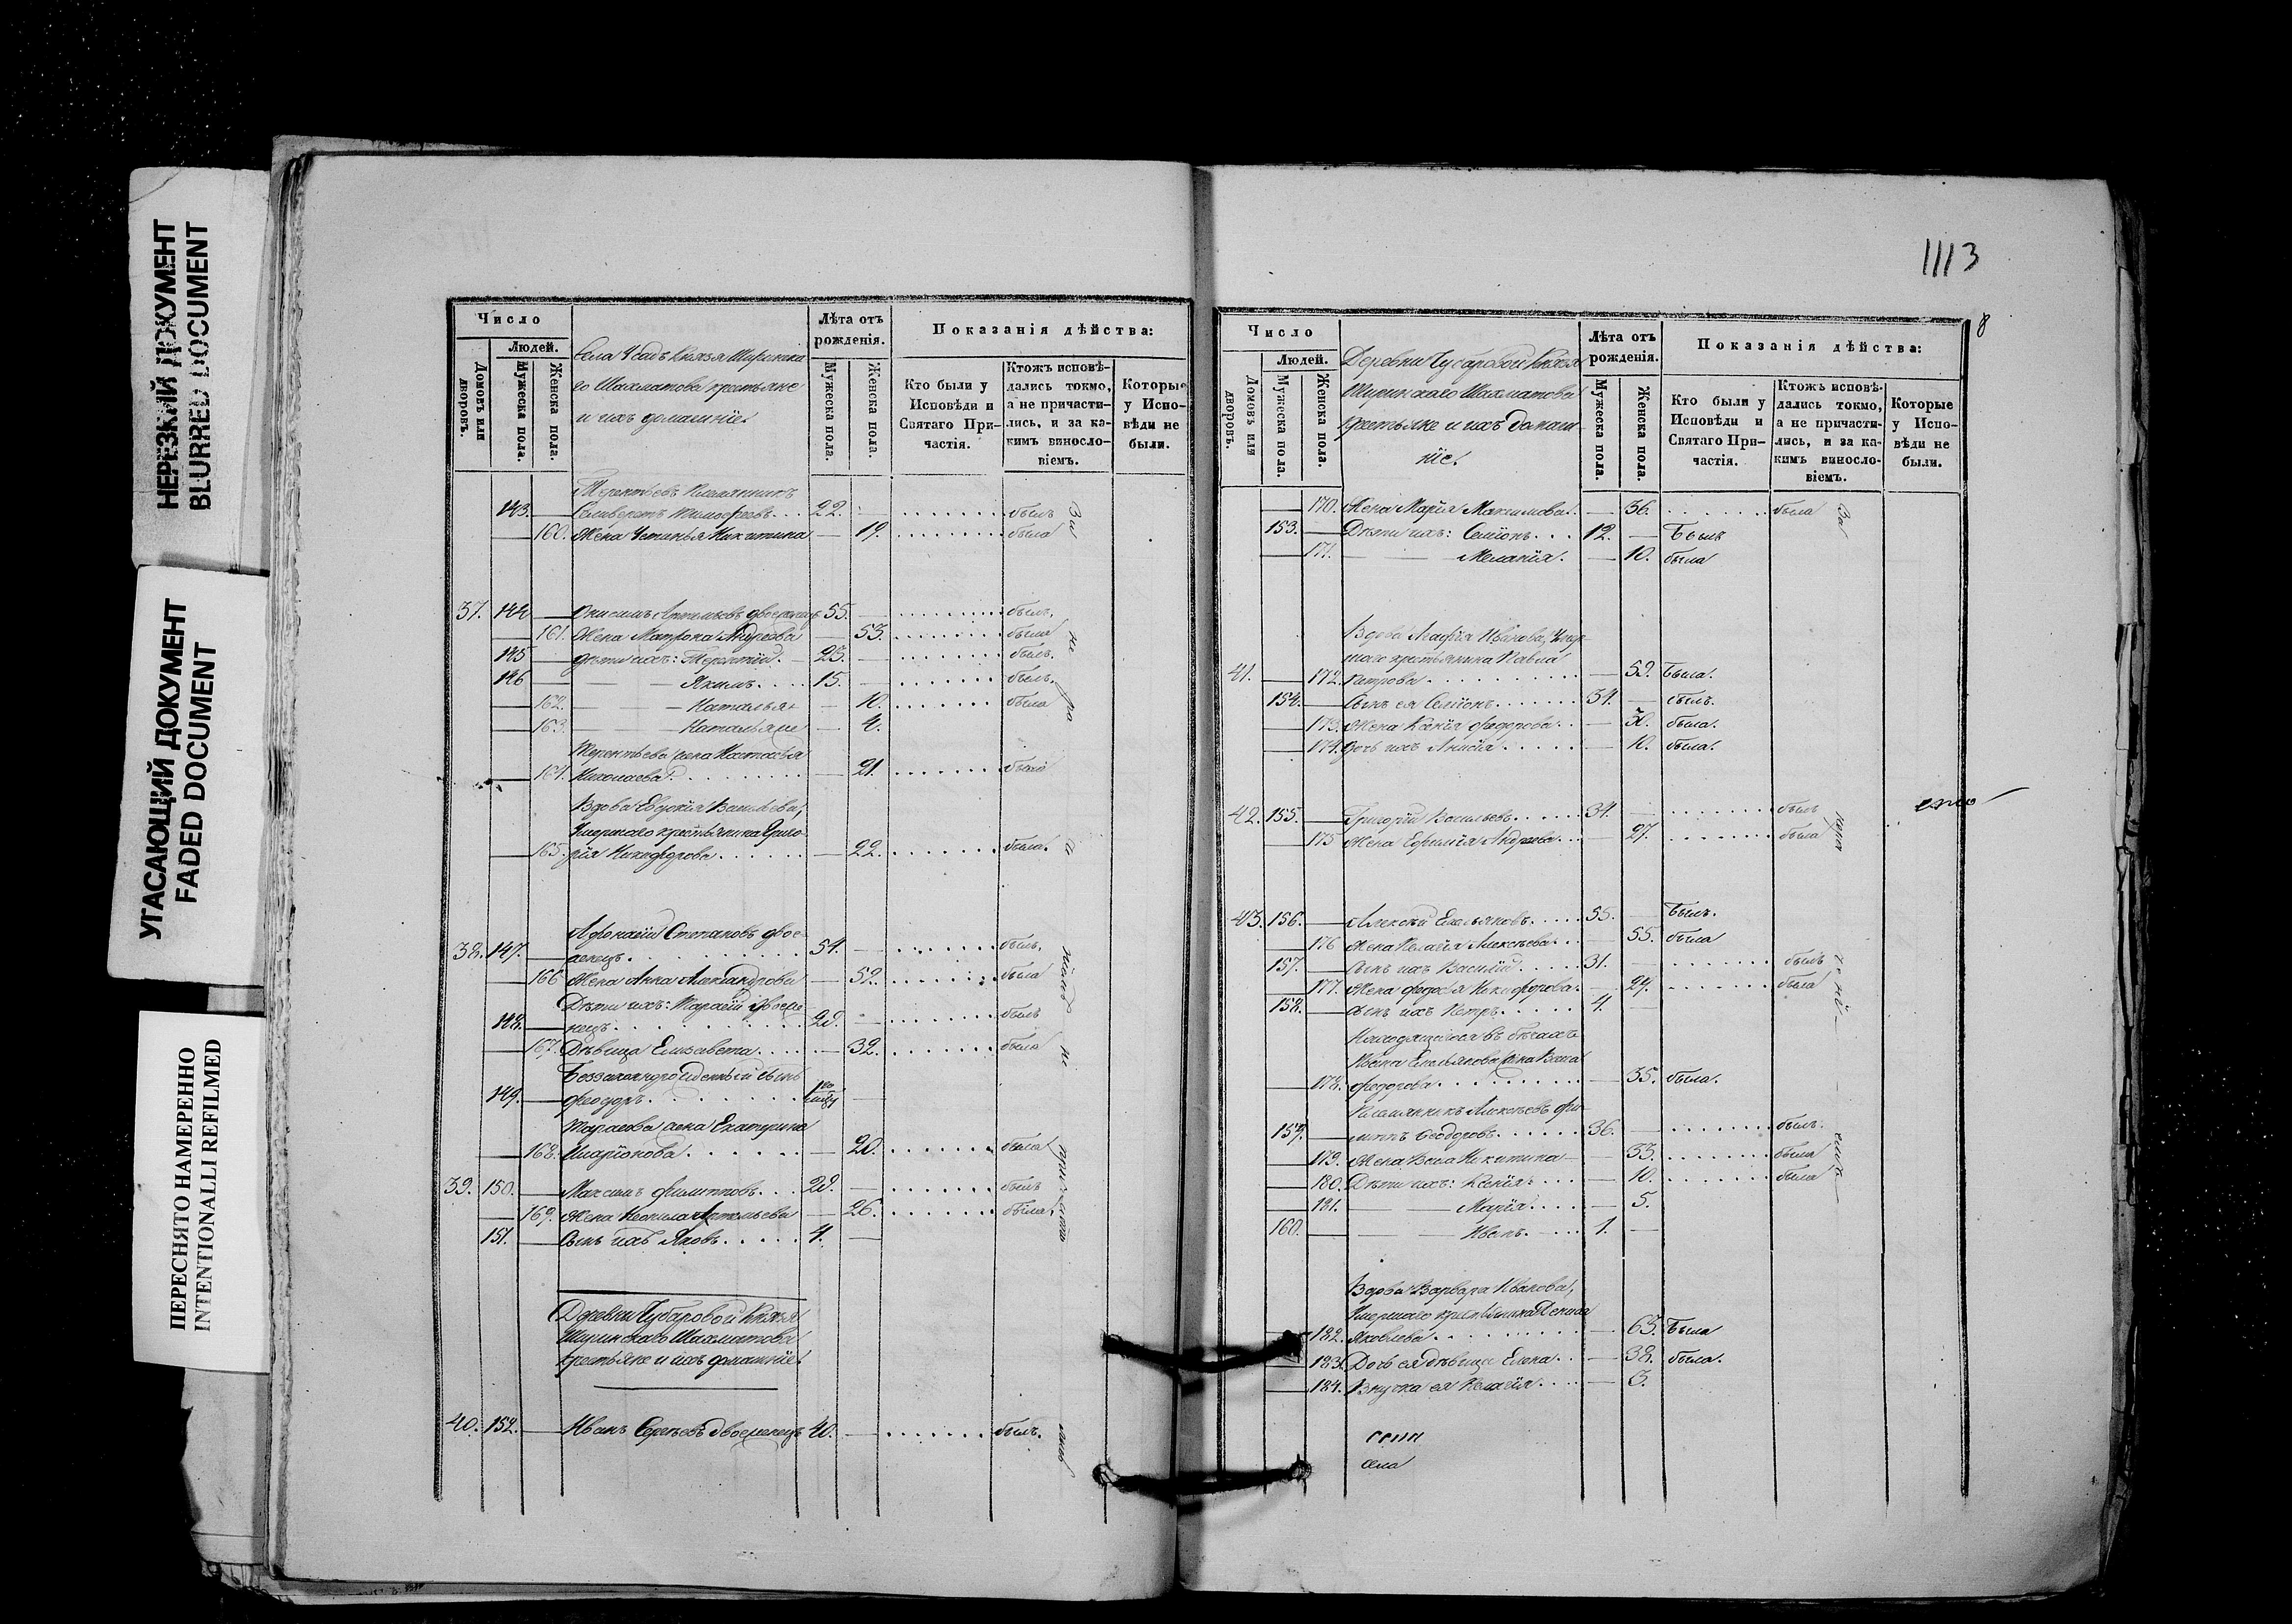 НЕРЕЗКИЙ ДОКУМЕНТ
BLURRED DOCUMENT
УГАСАЮЩИЙ ДОКУМЕНТ
FADED DOCUMENT
ПЕРЕСНЯТО НАМЕРЕННО
INTENTIONALLI REFILMED
Число
Людей.
Домовъ или дворовъ.
Мужеска пола.
Женска пола.
Села Усадъ Князя Ширинска
го Шахматова крестьяне
и ихъ домашніе.
Лѣта отъ рожденія.
Мужеска пола.
Женска пола.
Показанія дѣйства:
Кто были у Исповѣди и Святаго Причастія.
Ктожъ исповѣдались токмо, а не причастились, и за какимъ винословіемъ.
Которые у Исповѣди не были.
Терентьевъ племянникъ
143. Тимофеевъ 22. былъ
160. Жена Устинья Никитина 19. была
37. 144 Онисимъ Артемьевъ двоеженецъ 55. былъ.
161. Жена Матрона Андреева 53. была
145 дѣти ихъ: Терентій 23. былъ.
146 Якимъ 15. былъ.
162. Наталья 10. была
163. Наталья 4.
Терентьева жена Настасья
164. Николаева 21. была
Вдова Евдокія Васильева,
Умершаго крестьянина Григо-
165. рія Никифорова 22. была.
Афонасій Степановъ двое-
38. 147. женецъ 54. былъ.
166 Жена Анна Александрова 52. была
Дѣти ихъ: Тарасій двоеже
148. нецъ 28. былъ
167. Дѣвица Елисавета 32. была
Беззаконнорожденный сынъ
149. Феодоръ
Тарасова жена Екатерина
168. Иларіонова 20. была
39. 150. Максимъ Филипповъ 28. былъ
169. Жена Неонила Артемьева 26. была.
151. Сынъ ихъ Яковъ 4.
Деревни Чубаровой Князя
Ширинскаго Шахматова
крестьяне и ихъ домашніе.
40. 152. Иванъ Сергѣевъ двоеженецъ 40. былъ.
1113
8
Число
Людей.
Домовъ или дворовъ.
Мужеска пола.
Женска пола.
Деревни Чубаровой Князя
Ширинскаго Шахматова
Крестьяне и ихъ домаш-
ніе.
Лѣта отъ рожденія.
Мужеска пола.
Женска пола.
Показанія дѣйства:
Кто были у Исповѣди и Святаго Причастія.
Ктожъ исповѣдались токмо, а не причастились, и за какимъ винословіемъ.
Которые у Исповѣди не были.
170. Жена Марія Максимова 36. была
153. Дѣти ихъ: Семіонъ 12. Былъ
171. Меланія. 10. была
Вдова Агафія Иванова, Умер-
шаго крестьянина Павла
41. 172. Петрова 52. Была.
154. Сынъ ея Семіонъ 31. былъ.
173. Жена Ксенія Федорова 30. была.
174. Дочь ихъ Анисія 10. была.
42. 155. Григорій Васильевъ 31. былъ
175 Жена Ефимія Андреева 27. была
43. 156. Алексѣй Емельяновъ 55. Былъ.
176 Жена Пелагія Алексѣева 55. была
157. Сынъ ихъ Василій 31. былъ
177. Жена Федосья Никифорова 29. была
158. Сынъ ихъ Петръ 4.
Находящагося въ бѣгахъ
Емельянова жена
178. Федорова 35. была.
Племянникъ Алексѣевъ Фи-
159. липпъ Феодоровъ 36. былъ.
179. Жена Никитина 33. была
180. Дѣти ихъ: Ксенія 10. была
181. Марія 5.
160. Иванъ 1.
Вдова Варвара Иванова,
Умершаго крестьянина
182. Яковлева 63. Была
183. Дочь ея дѣвица Елена 38. была.
184. Внучка ея Пелагія 3.